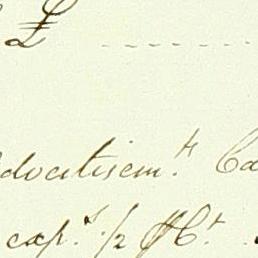 £
dvertisem.t Ca
cap.s 1/2